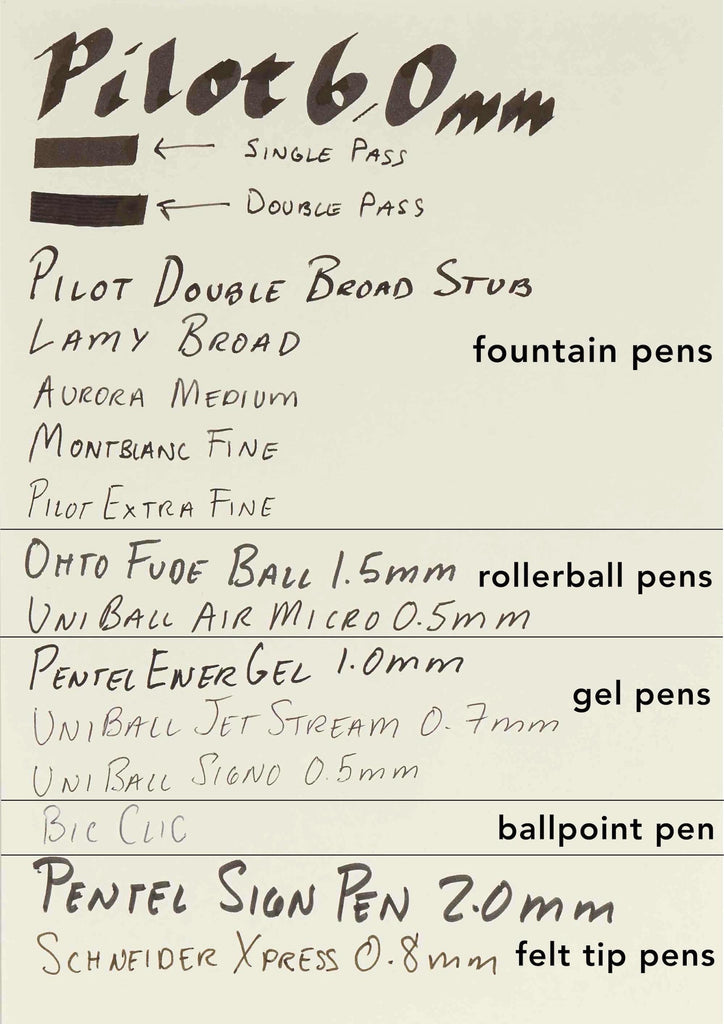 Pilot 6.0mm
Single Pass
Double Pass
Pilot Double Broad Stub
Lamy Broad
fountain pens
Aurora Medium
Montblanc Fine
Pilot Extra Fine
Ohto Fude Ball 1.5mm
rollerball pens
UniBall Air Micro 0.5mm
Pentel EnerGel 1.0mm
gel pens
UniBall JetStream 0.7mm
UniBall Signo 0.5mm
Bic Clic
ballpoint pen
Pentel Sign Pen 2.0mm
Schneider Xpress 0.8mm
felt tip pens